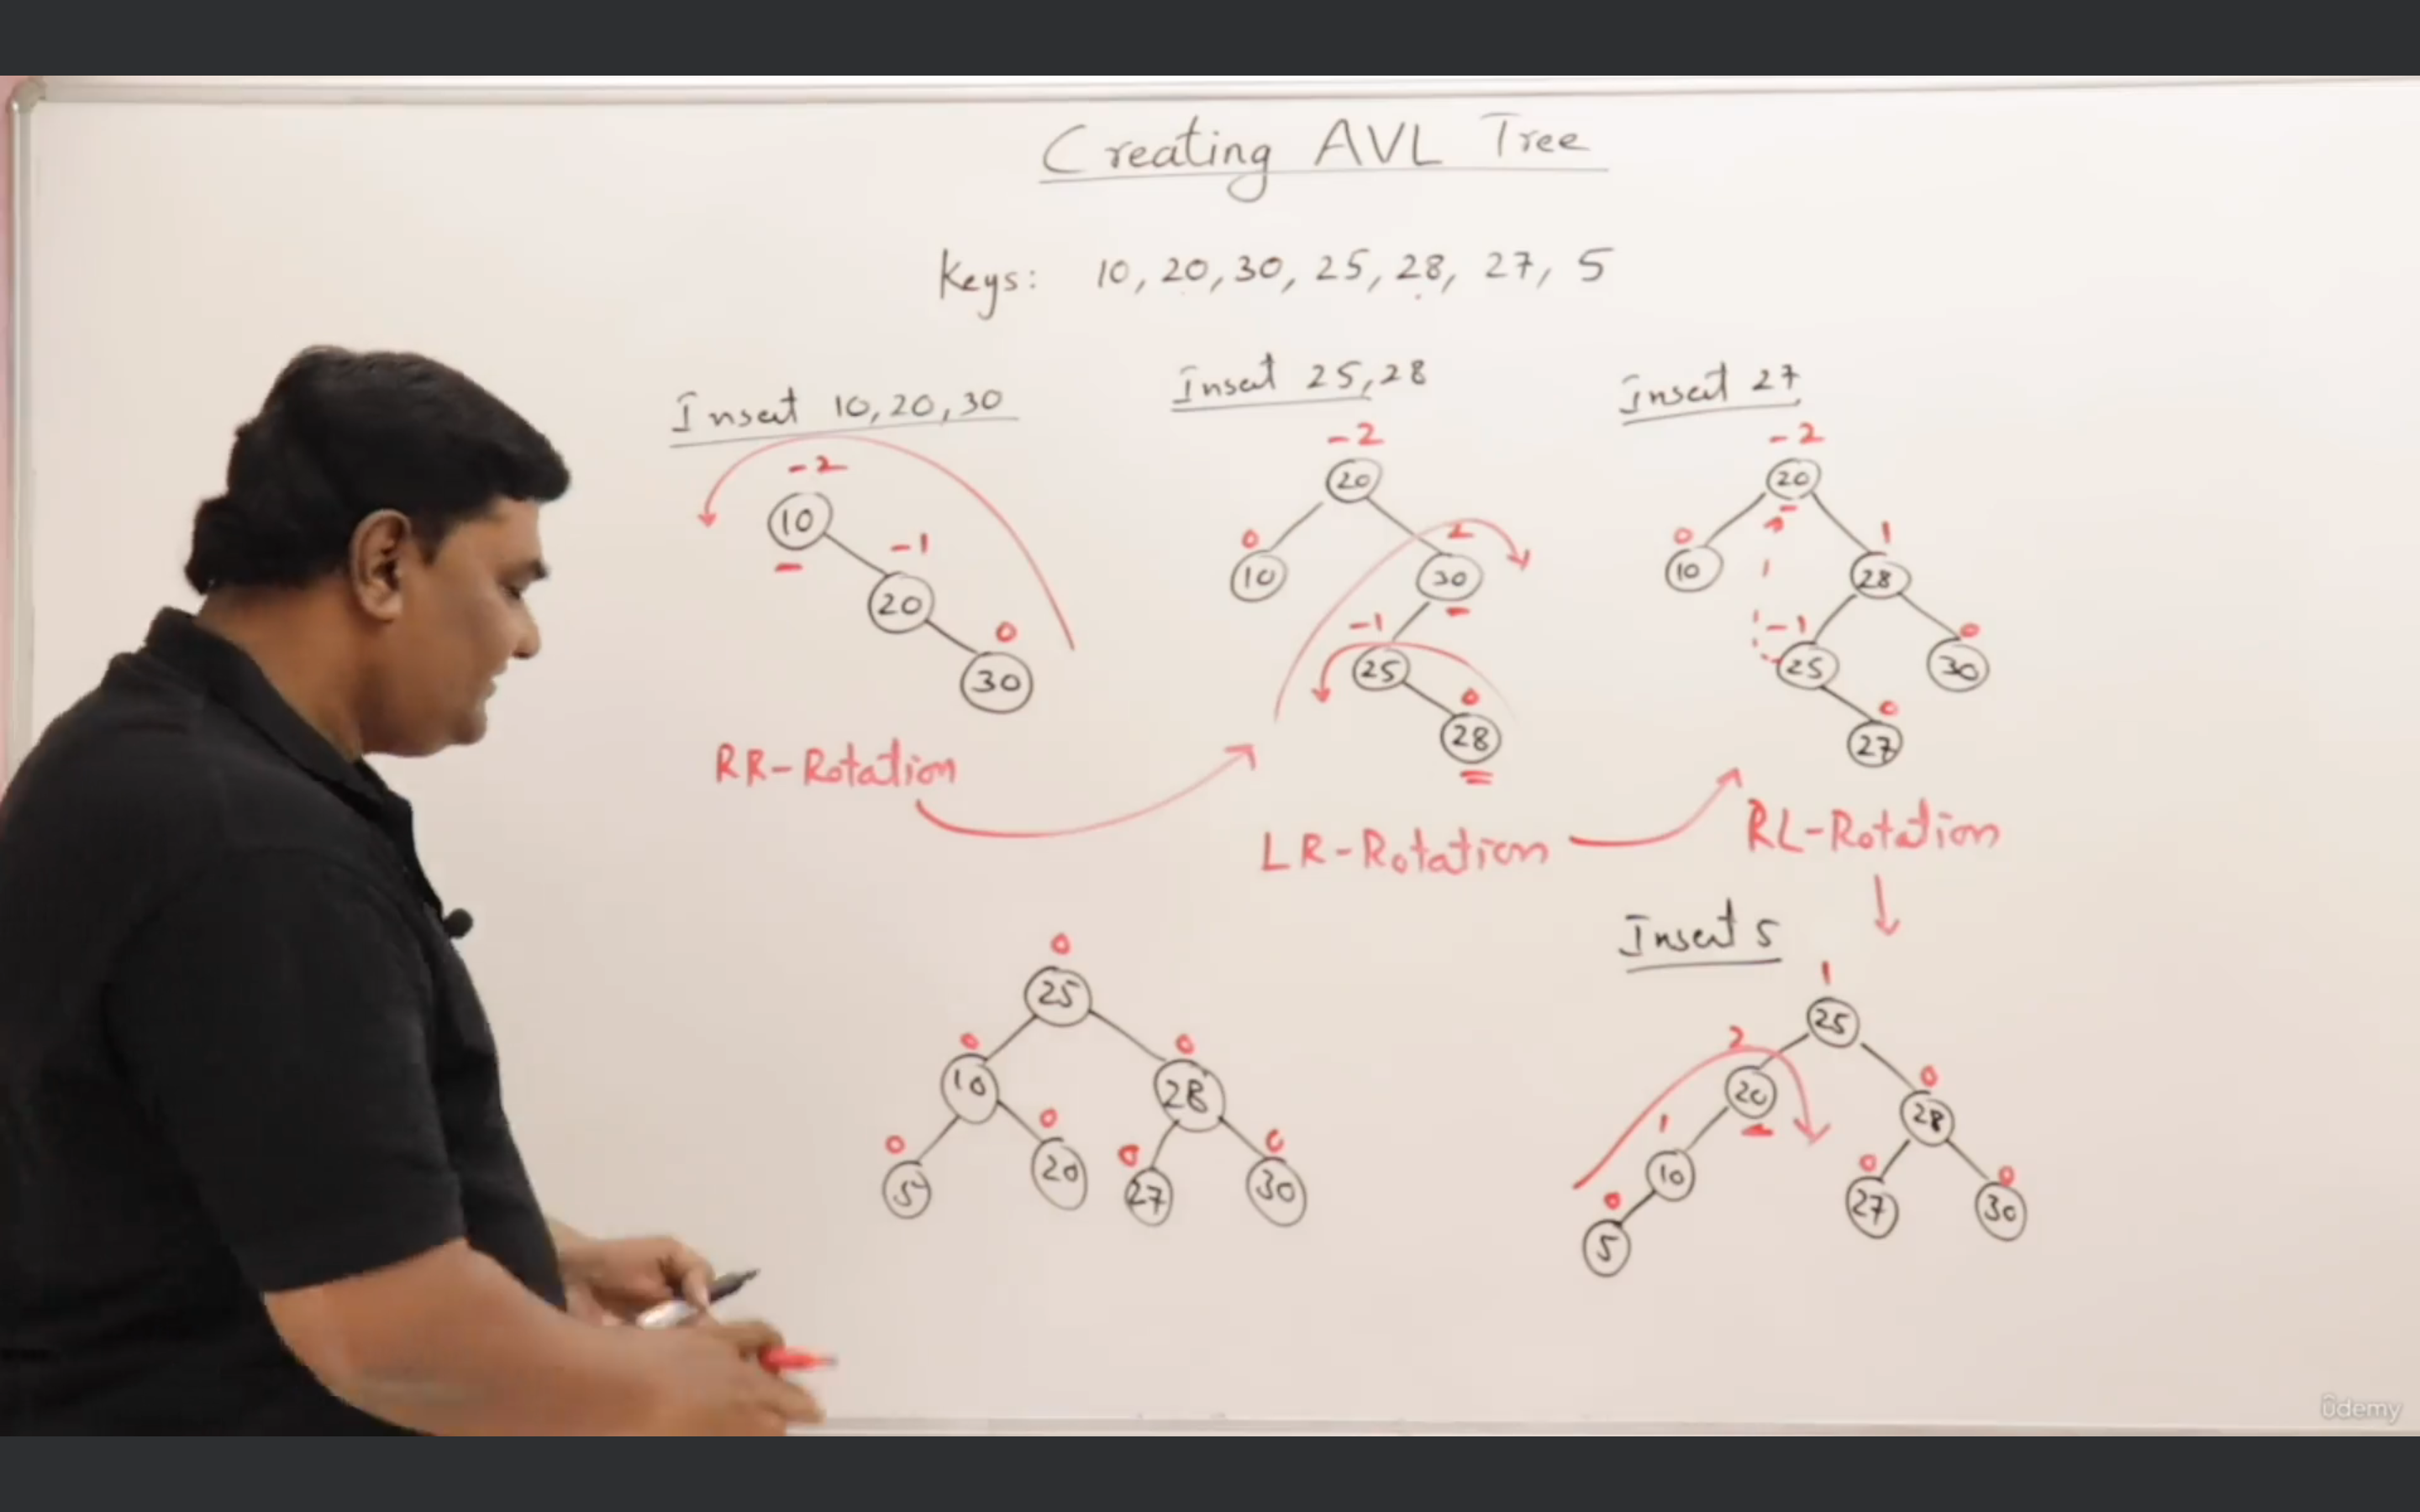 Creating AVL Tree
Keys: 10, 20, 30, 25, 28, 27, 5
Insert 10, 20, 30
-2
10
-1
20
0
30
RR-Rotation
Insert 25, 28
-2
20
0
10
2
30
-1
25
0
28
LR-Rotation
Insert 27
-2
20
0
10
1
28
-1
25
0
30
0
27
RL-Rotation
Insert 5
1
25
2
20
0
28
1
10
0
27
0
30
0
5
0
25
0
10
0
28
0
5
0
20
0
27
0
30
ûdemy